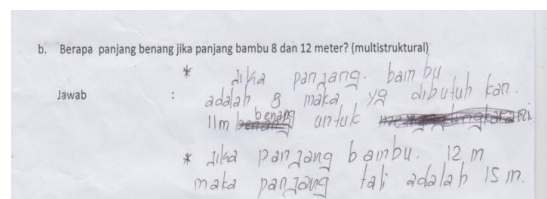 b. Berapa panjang benang jika panjang bambu 8 dan 12 meter? (multistruktural)
* Jika panjang. bambu
Jawab : adalah 8 maka yg dibutuh kan.
11m benang untuk
* Jika panjang bambu. 12 m
maka panjang tali adalah 15 m.